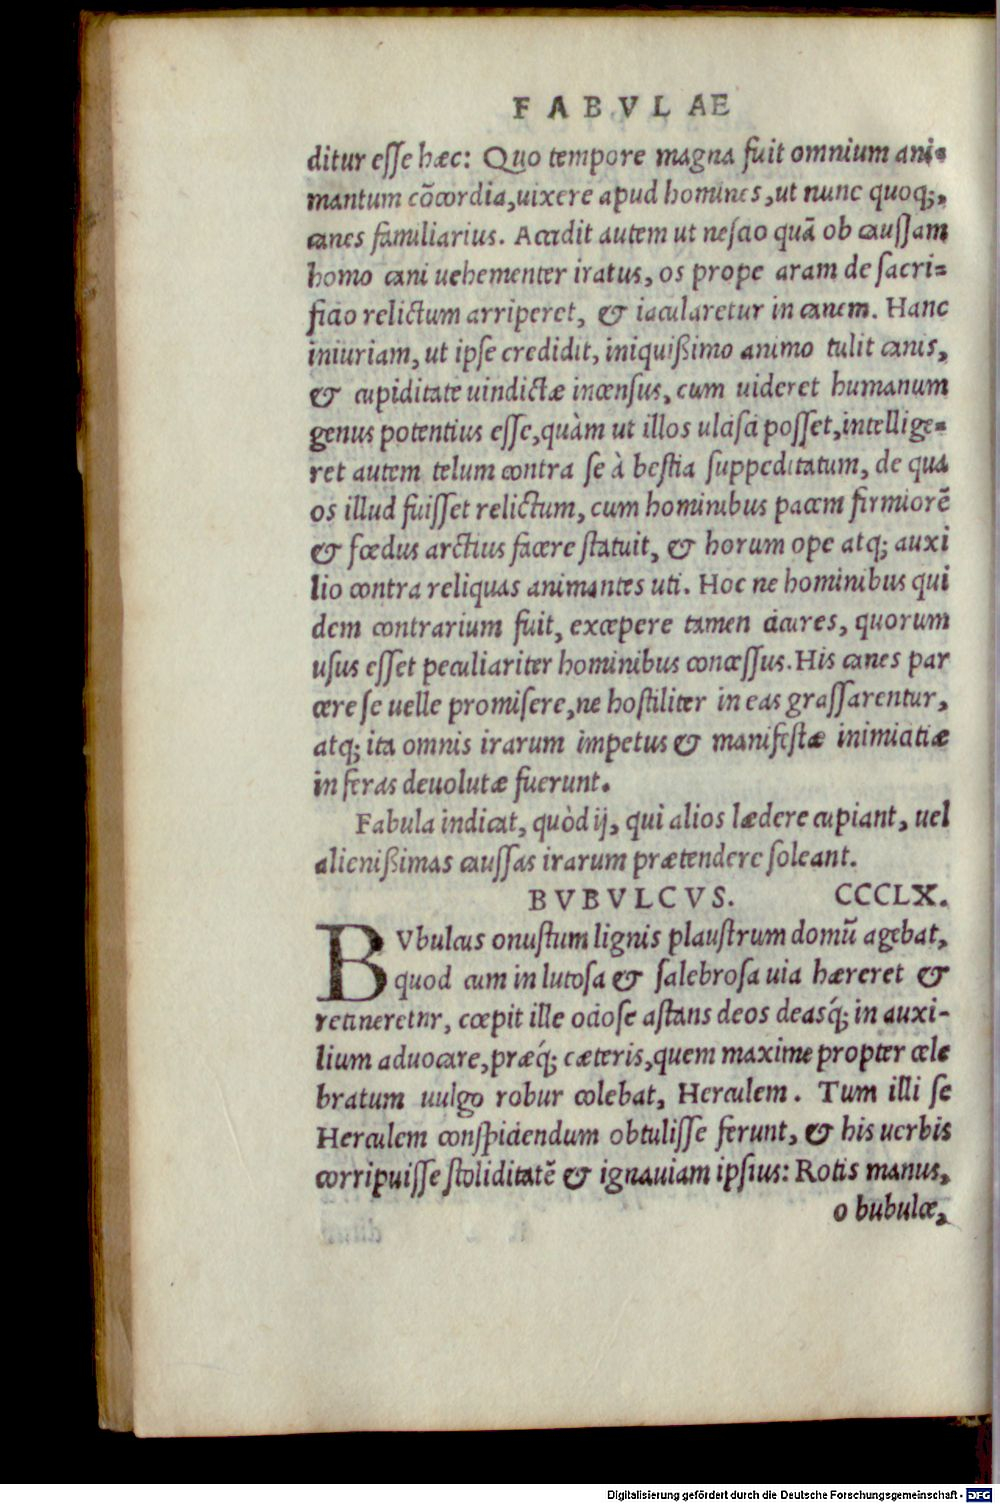 FABVLAE
ditur esse hæc: Quo tempore magna fuit omnium ani-
mantum cõcordia, uixere apud homines, ut nunc quoq;,
canes familiarius. Accidit autem ut nescio quã ob caussam
homo cani uehementer iratus, os prope aram de sacri-
ficio relictum arriperet, & iacularetur in canem. Hanc
iniuriam, ut ipse credidit, iniquißimo animo tulit canis,
& cupiditate uindictæ incensus, cum uideret humanum
genus potentius esse, quàm ut illos ulcisci posset, intellige-
ret autem telum contra se à bestia suppeditatum, de qua
os illud fuisset relictum, cum hominibus pacem firmiorẽ
& fœdus arctius facere statuit, & horum ope atq; auxi
lio contra reliquas animantes uti. Hoc ne hominibus qui
dem contrarium fuit, excepere tamen cicures, quorum
usus esset peculiariter hominibus concessus. His canes par
cere se uelle promisere, ne hostiliter in eas grassarentur,
atq; ita omnis irarum impetus & manifestæ inimicitiæ
in feras deuolutæ fuerunt.
Fabula indicat, quòd ij, qui alios lædere cupiant, uel
alienißimas caussas irarum prætendere soleant.
BVBVLCVS. CCCLX.
BVbulcus onustum lignis plaustrum domũ agebat,
quod cum in lutosa & salebrosa uia hæreret &
retineretnr, cœpit ille ociose astans deos deasq́; in auxi-
lium aduocare, præq́; cæteris, quem maxime propter cele
bratum uulgo robur colebat, Herculem. Tum illi se
Herculem conspiciendum obtulisse ferunt, & his uerbis
corripuisse stoliditatẽ & ignauiam ipsius: Rotis manus,
o bubulce,
Digitalisierung gefördert durch die Deutsche Forschungsgemeinschaft - DFG